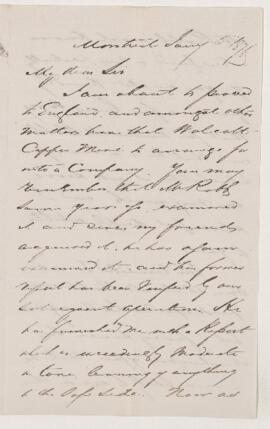 Montreal Jany 5
My dear Sir
I am about to proceed
to England and amongst other
matters have that Wolcott
Copper Mine to arrange for
into a Company. You may
remember that Mr Robb
some years ago examined
it and since my friends
acquired it, he has again
examined it, and his former
report has been verified by our
subsequent operations. He
has furnished me with a Report
which is exceedingly moderate
in tone leaning if anything
to the safe side. Now as